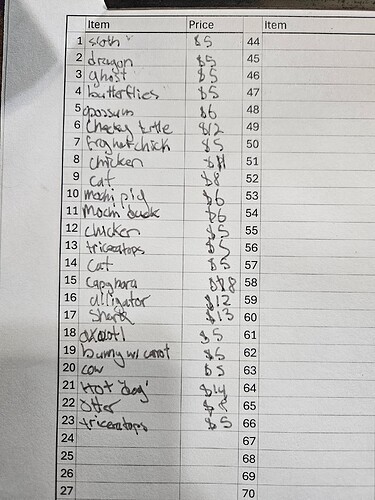 Item Price Item
1 sloth $5 44
2 dragon $5 45
3 ghost $5 46
4 butterflies $5 47
5 opossum $6 48
6 Checky turtle $12 49
7 frog hat chick $5 50
8 chicken 51
9 cat $8 52
10 mochi pig $6 53
11 Mochi duck $6 54
12 chicken $5 55
13 triceratops $5 56
14 cat $5 57
15 capybara 58
16 alligator $12 59
17 Shark $13 60
18 axolotl $5 61
19 bunny w/ carrot $5 62
20 cow $5 63
21 Hot "dog" $14 64
22 Otter 65
23 triceratops $5 66
24 67
25 68
26 69
27 70